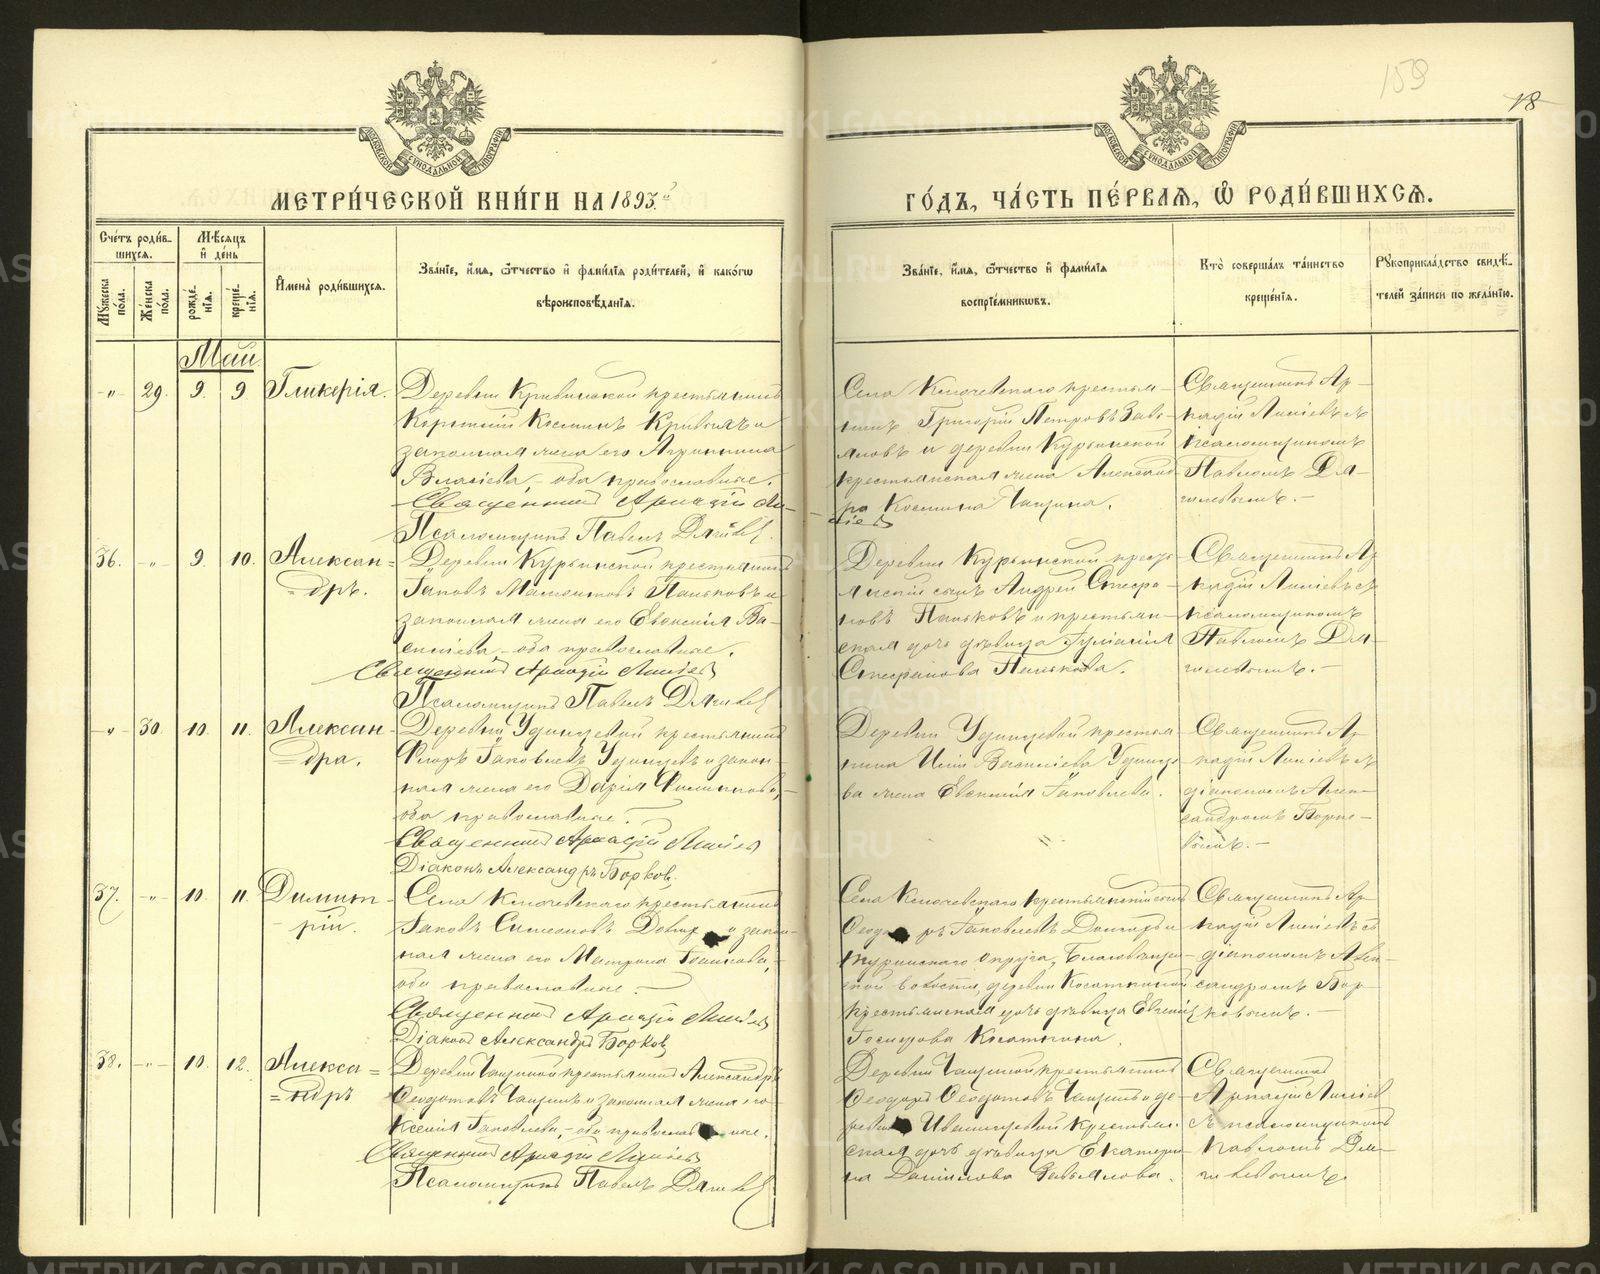 159
18
МОСКОВСКОЙ СѴНОДАЛЬНОЙ ТИПОГРАФІИ
МОСКОВСКОЙ СѴНОДАЛЬНОЙ ТИПОГРАФІИ
МЕТРИ́ЧЕСКОЙ КНИ́ГИ НА 1893.й
ГО́ДЪ, ЧА́СТЬ ПЕ́РВАѦ, Ѡ҆ РОДИ́ВШИХСѦ.
Сче́тъ роди́в-
шихсѧ.
Му́жеска по́ла.
Же́нска по́ла.
Мѣ́сѧцъ
и҆ де́нь
рожде́-
нїѧ.
креще́-
нїѧ.
И҆мена̀ роди́вшихсѧ.
Зва́нїе, и҆́мѧ, ѻ҆́тчество и҆ фами́лїѧ роди́телей, и҆ како́гѡ
вѣроисповѣ́данїѧ.
Зва́нїе, и҆́мѧ, ѻ҆́тчество и҆ фами́лїѧ
воспрїе́мникѡвъ.
Кто̀ соверша́лъ та́инство
креще́нїѧ.
Рꙋкоприкла́дство свидѣ́-
телей за́писи по жела́нїю.
Май
-„- 29. 9. 9 Гликерія.
Деревни Кривинской крестьянинъ
Космин Кривыхъ и
законная жена его Агрипина
Власіева - оба православные.
Священникъ Аркадій Ли-
сіевъ
Псаломщикъ Павелъ Дягилев
Села Ключевскаго крестья-
нинъ Григорій Петровъ Завь-
яловъ и деревни Курьинской
крестьянская жена Александ-
ра Космина Чащина.
Священникъ Ар-
кадій Лисіевъ съ
псаломщикомъ
Павломъ Дя-
гилевымъ.-
36. -„- 9. 10. Алексан-
дръ.
Деревни Курьинской крестьянинъ
Іаковъ Мамонтовъ Паньковъ и
законная жена его Евгенія Ва-
силіева - оба православные.
Священникъ Аркадій Лисіевъ
Псаломщикъ Павелъ Дягилев
Деревни Курьинской кресть-
янскій сынъ Андрей Стефа-
новъ Паньковъ и крестьян-
ская дочь дѣвица Іуліанія
Стефанова Панькова.
Священникъ Ар-
кадій Лисіевъ съ
псаломщикомъ
Павломъ Дя-
гилевымъ.-
-„- 30. 10. 11. Алексан-
дра.
Деревни Удинцевой крестьянинъ
Флоръ Іаковлевъ Удинцевъ и закон-
ная жена его Дарія Филиппова,-
оба православные.-
Священникъ Аркадій Лисіев
Діаконъ Александръ Борков.
Деревни Удинцевой крестья-
нина Иліи Василіева Удинце-
ва жена Евгенія Іаковлева.
Священникъ Ар-
кадій Лисіевъ съ
діакономъ Алек-
сандромъ Борко-
вымъ.-
37. -„- 10. 11. Димит-
рій.
Села Ключевскаго крестьянинъ
Іаковъ Симеоновъ и закон-
ная жена его Матрона,
оба православные.-
Священникъ Аркадій Лисіевъ
Діаконъ Александръ Борков
Села Ключевскаго крестьянскій сынъ
Ѳеодоръ Іаковлевъ и
Туринскаго округа, Благовѣщен-
ской волости, деревни
крестьянская дочь дѣвица Евгенія
Священникъ Ар-
кадій Лисіевъ съ
діакономъ Алек-
сандромъ Бор-
ковымъ.-
38. -„- 10. 12. Алекса-
ндръ
Деревни Чащиной крестьянинъ Александръ
Ѳеодотовъ Чащинъ и законная жена его
Ксенія Іаковлева, - оба православные.
Священникъ Аркадій Лисіевъ
Псаломщикъ Павелъ Дягилев
Деревни Чащиной крестьянинъ
Ѳеодоръ Ѳеодотовъ Чащинъ и де-
ревни Ивашцевой крестьян-
ская дочь дѣвица Екатери-
на Данилова Завьялова.
Священникъ
Аркадій Лисіев
съ псаломщикомъ
Павломъ Дя-
гилевымъ.
METRIKI.GASO-URAL.RU